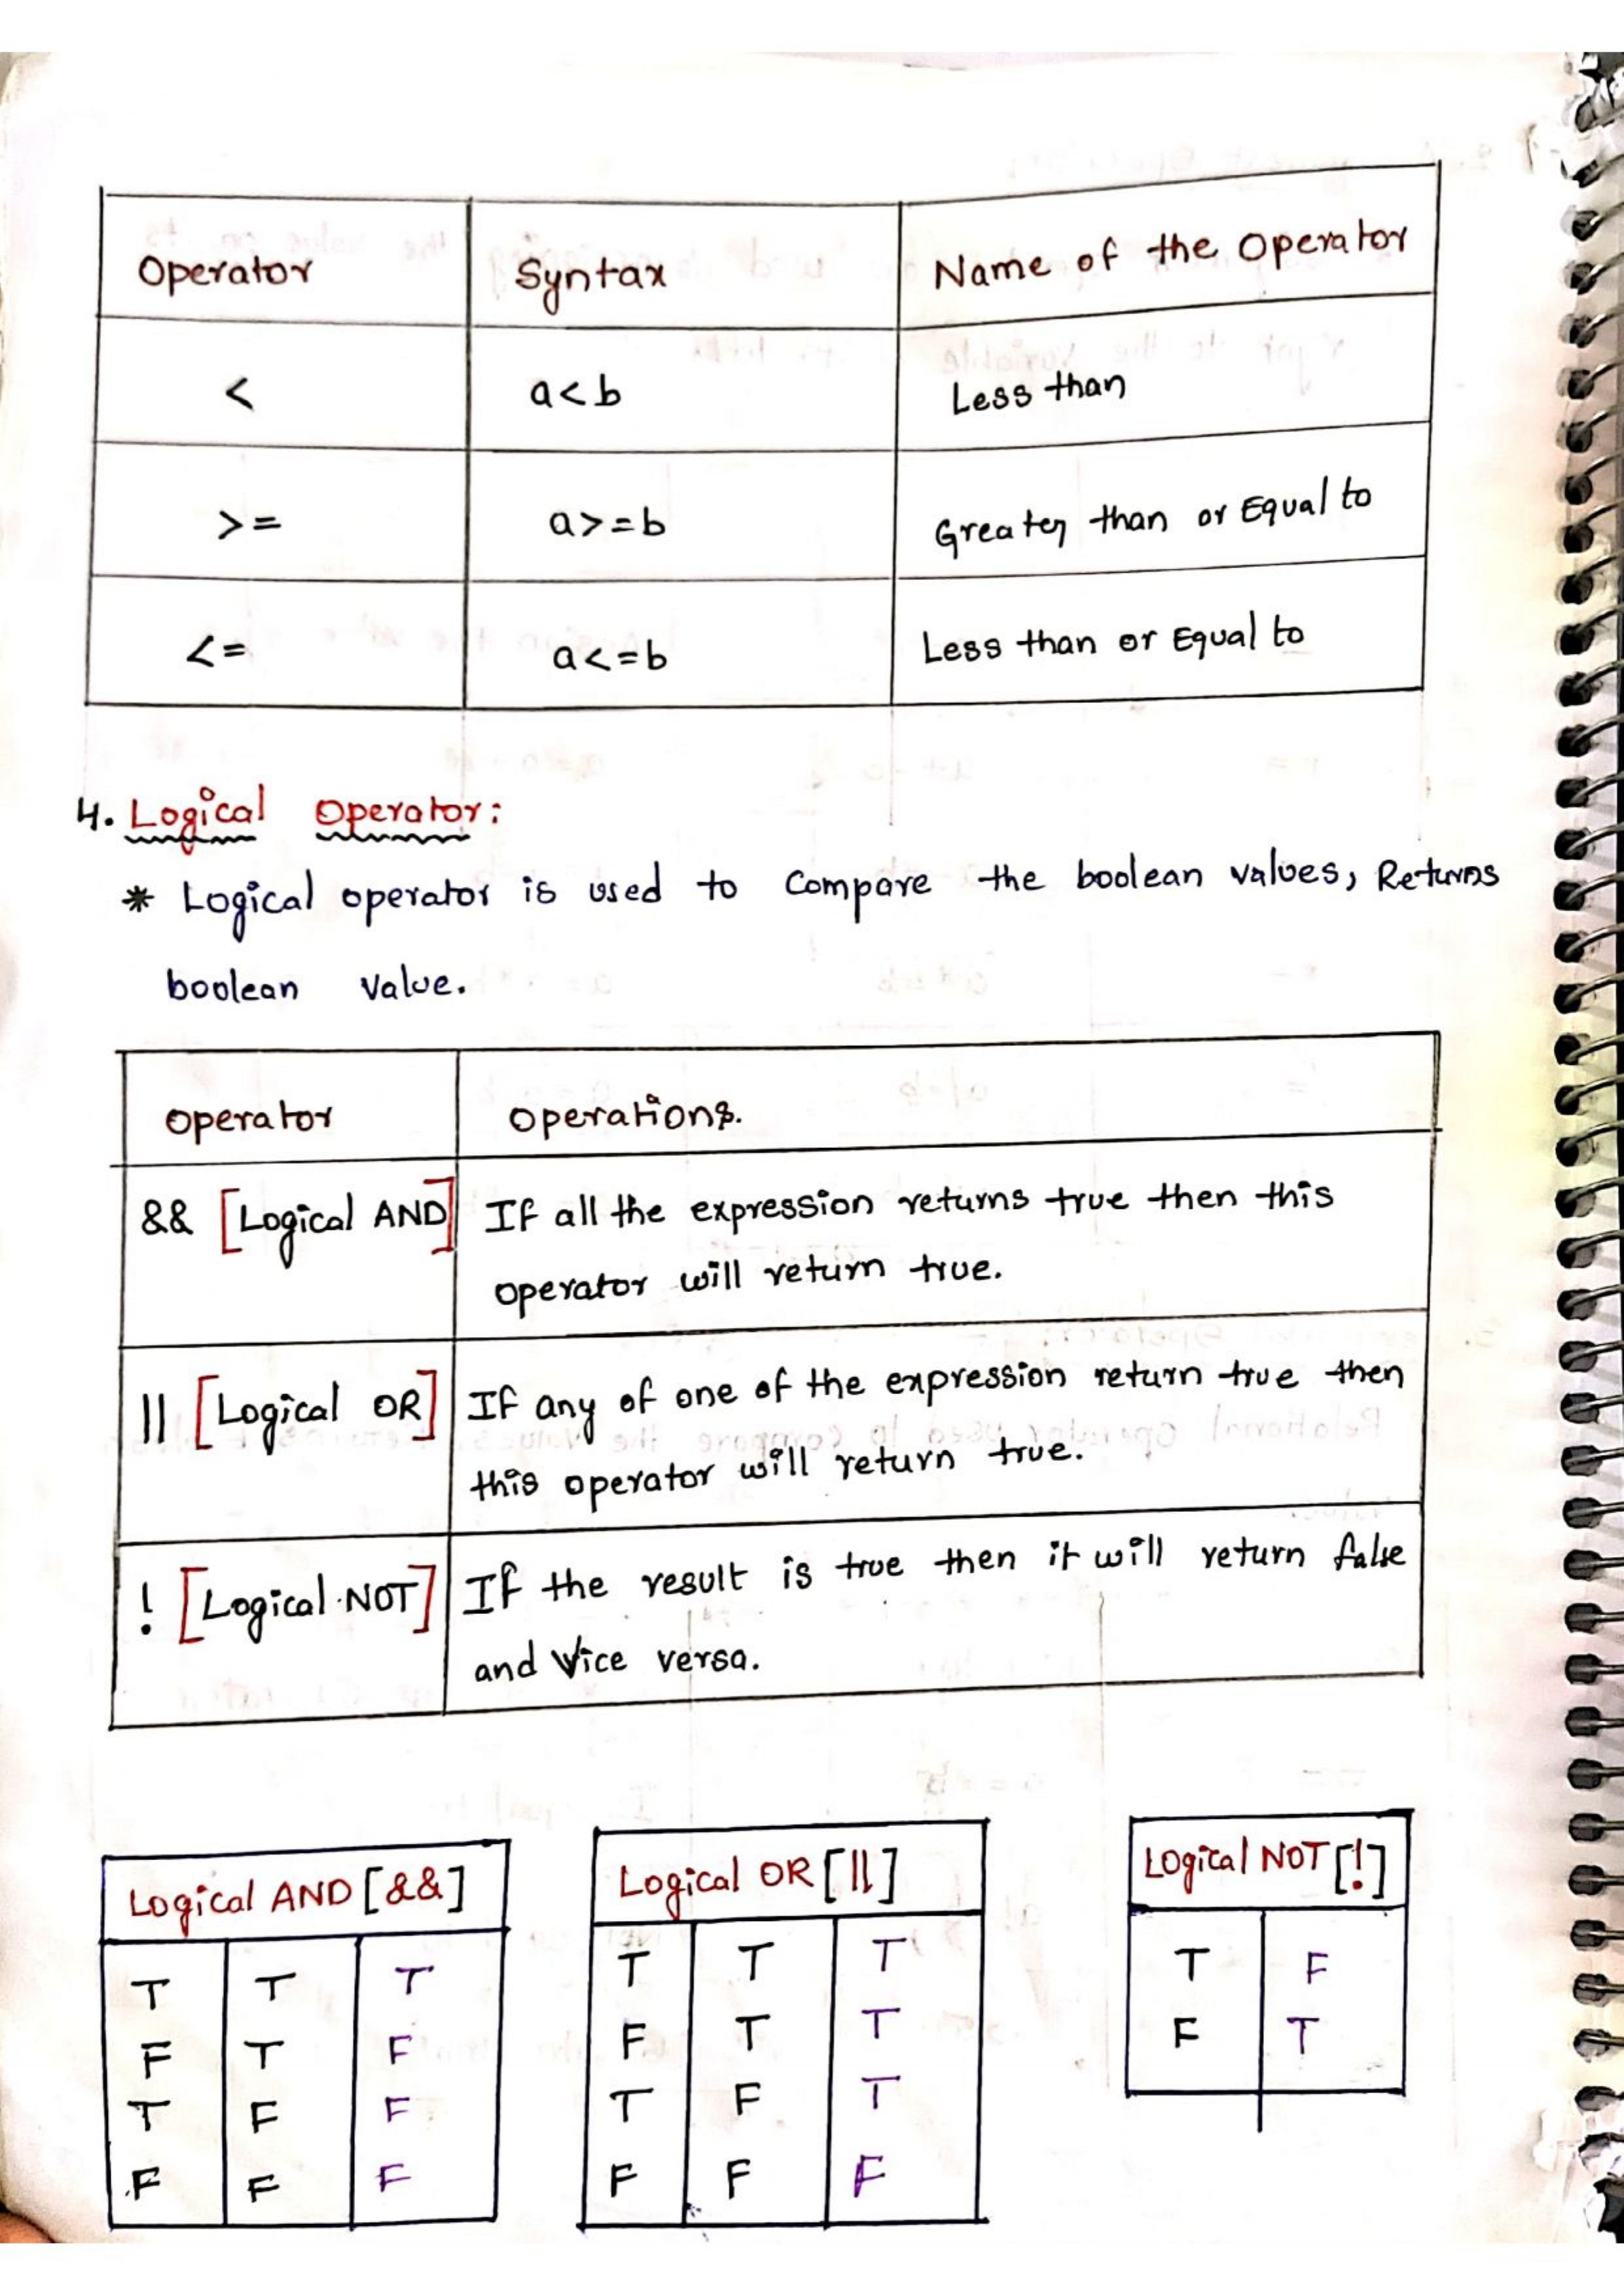 Operator Syntax Name of the Operator
< a<b Less than
>= a>=b Greater than or Equal to
<= a<=b Less than or Equal to
4. Logical Operator:
* Logical operator is used to compare the boolean values, Returns
boolean value.
operator operations.
&& [Logical AND] If all the expression returns true then this
operator will return true.
|| [Logical OR] If any of one of the expression return true then
this operator will return true.
! [Logical NOT] If the result is true then it will return false
and vice versa.
Logical AND [&&]
T T T
F T F
T F F
F F F
Logical OR [||]
T T T
F T T
T F T
F F F
Logical NOT [!]
T F
F T